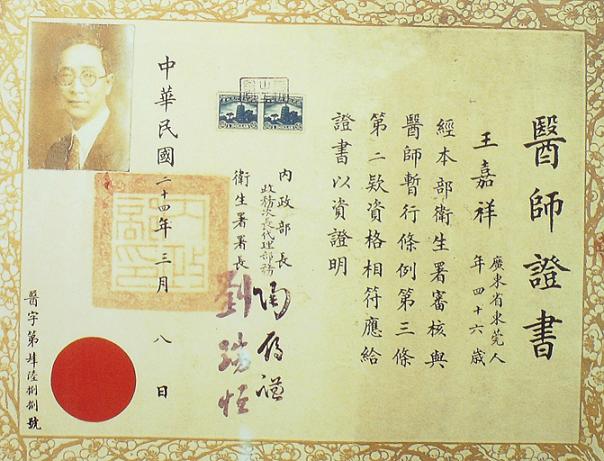 醫師證書
王嘉祥
廣東省東莞人
年四十六歲
經本部衛生署審核與
醫師暫行條例第三條
第二款資格相符應給
證書以資證明
內政部長
政務次長代理部務
陶履謙
衛生署署長
劉瑞恒
中華民國二十四年三月八日
醫字第肆陸捌捌號